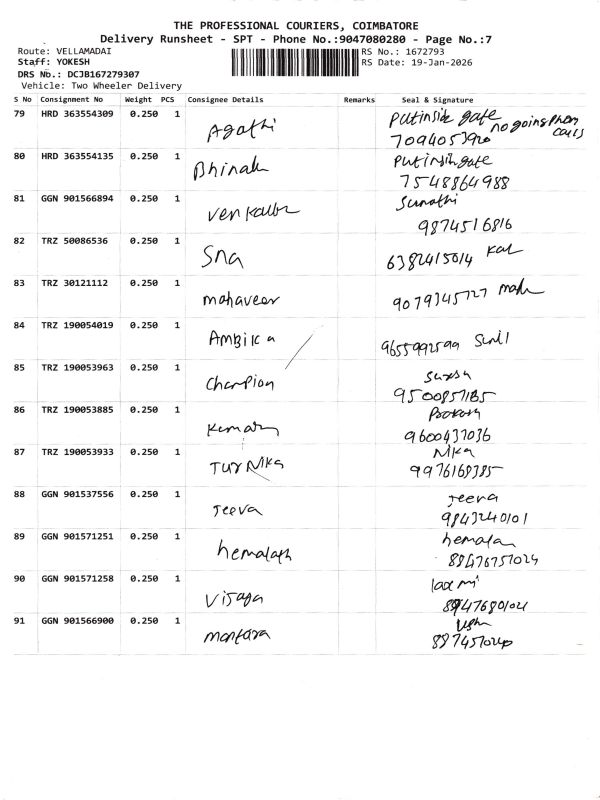 THE PROFESSIONAL COURIERS, COIMBATORE
Delivery Runsheet - SPT - Phone No.:9047080280 - Page No.:7
Route: VELLAMADAI
RS No.: 1672793
Staff: YOKESH
RS Date: 19-Jan-2026
DRS No.: DCJB167279307
Vehicle: Two Wheeler Delivery
S No Consignment No Weight PCS Consignee Details Remarks Seal & Signature
79 HRD 363554309 0.250 1 Agathi Put inside gate no going phone calls
7094053920
80 HRD 363554135 0.250 1 Put inside gate
7548864988
81 GGN 901566894 0.250 1 Sumathi
9874516816
82 TRZ 50086536 0.250 1 Sna
6382415614
83 TRZ 30121112 0.250 1 mahaveer
9079345727
84 TRZ 190054019 0.250 1 Ambika
9655992599 Sunil
85 TRZ 190053963 0.250 1 Champion
86 TRZ 190053885 0.250 1
9600437036
87 TRZ 190053933 0.250 1 Nika
9976168385
88 GGN 901537556 0.250 1 Jeeva Jeeva
9843240101
89 GGN 901571251 0.250 1 hemalath hemala
90 GGN 901571258 0.250 1 laxmi
91 GGN 901566900 0.250 1